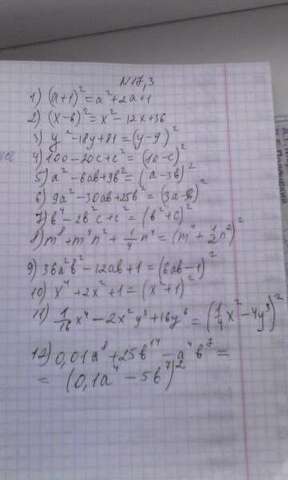 N17,3
1) (a+1)² = a²+2a+1
2) (x-6)² = x²-12x+36
3) y²-18y+81 = (y-9)²
4) 100-20c+c² = (10-c)²
5) a²-6ab+9b² = (a-3b)²
6) 9a²-30ab+25b² = (3a-5b)²
7) b⁴-2b²c+c² = (b²+c)²
8) m⁸+m⁴n²+1/4 n⁴ = (m⁴+1/2 n²)²
9) 36a²b²-12ab+1 = (6ab-1)²
10) x⁴+2x²+1 = (x²+1)²
11) 1/16 x⁴-2x²y³+16y⁶ = (1/4 x²-4y³)²
12) 0,01a⁸+25b¹⁴-a⁴b⁷ =
= (0,1a⁴-5b⁷)²